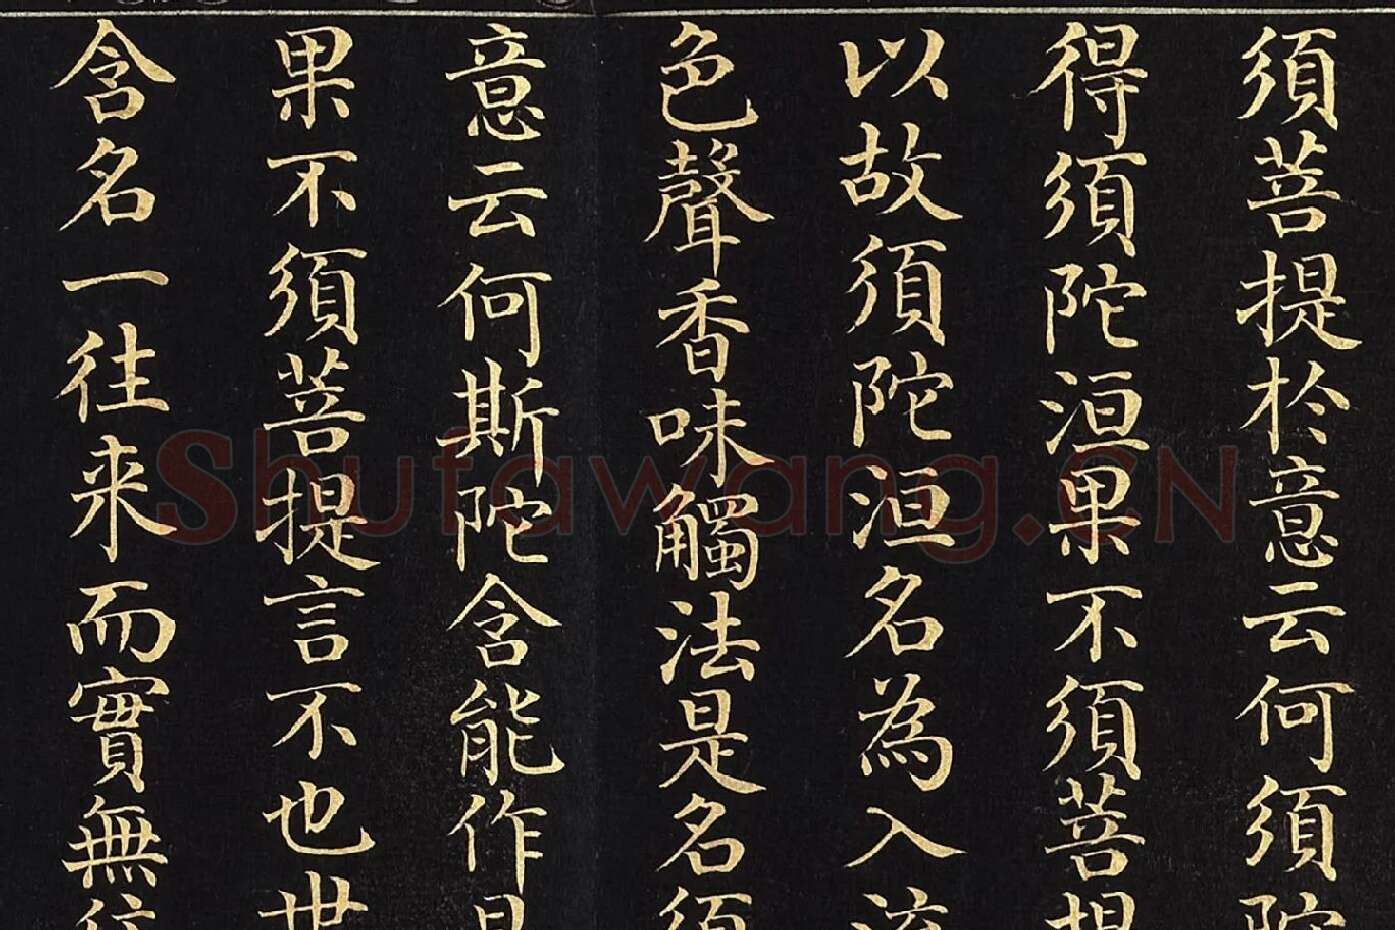 須菩提於意云何須陀
得須陀洹果不須菩提
以故須陀洹名為入流
色聲香味觸法是名須
意云何斯陀含能作是
果不須菩提言不也世
含名一往来而實無往
Shufawang.CN